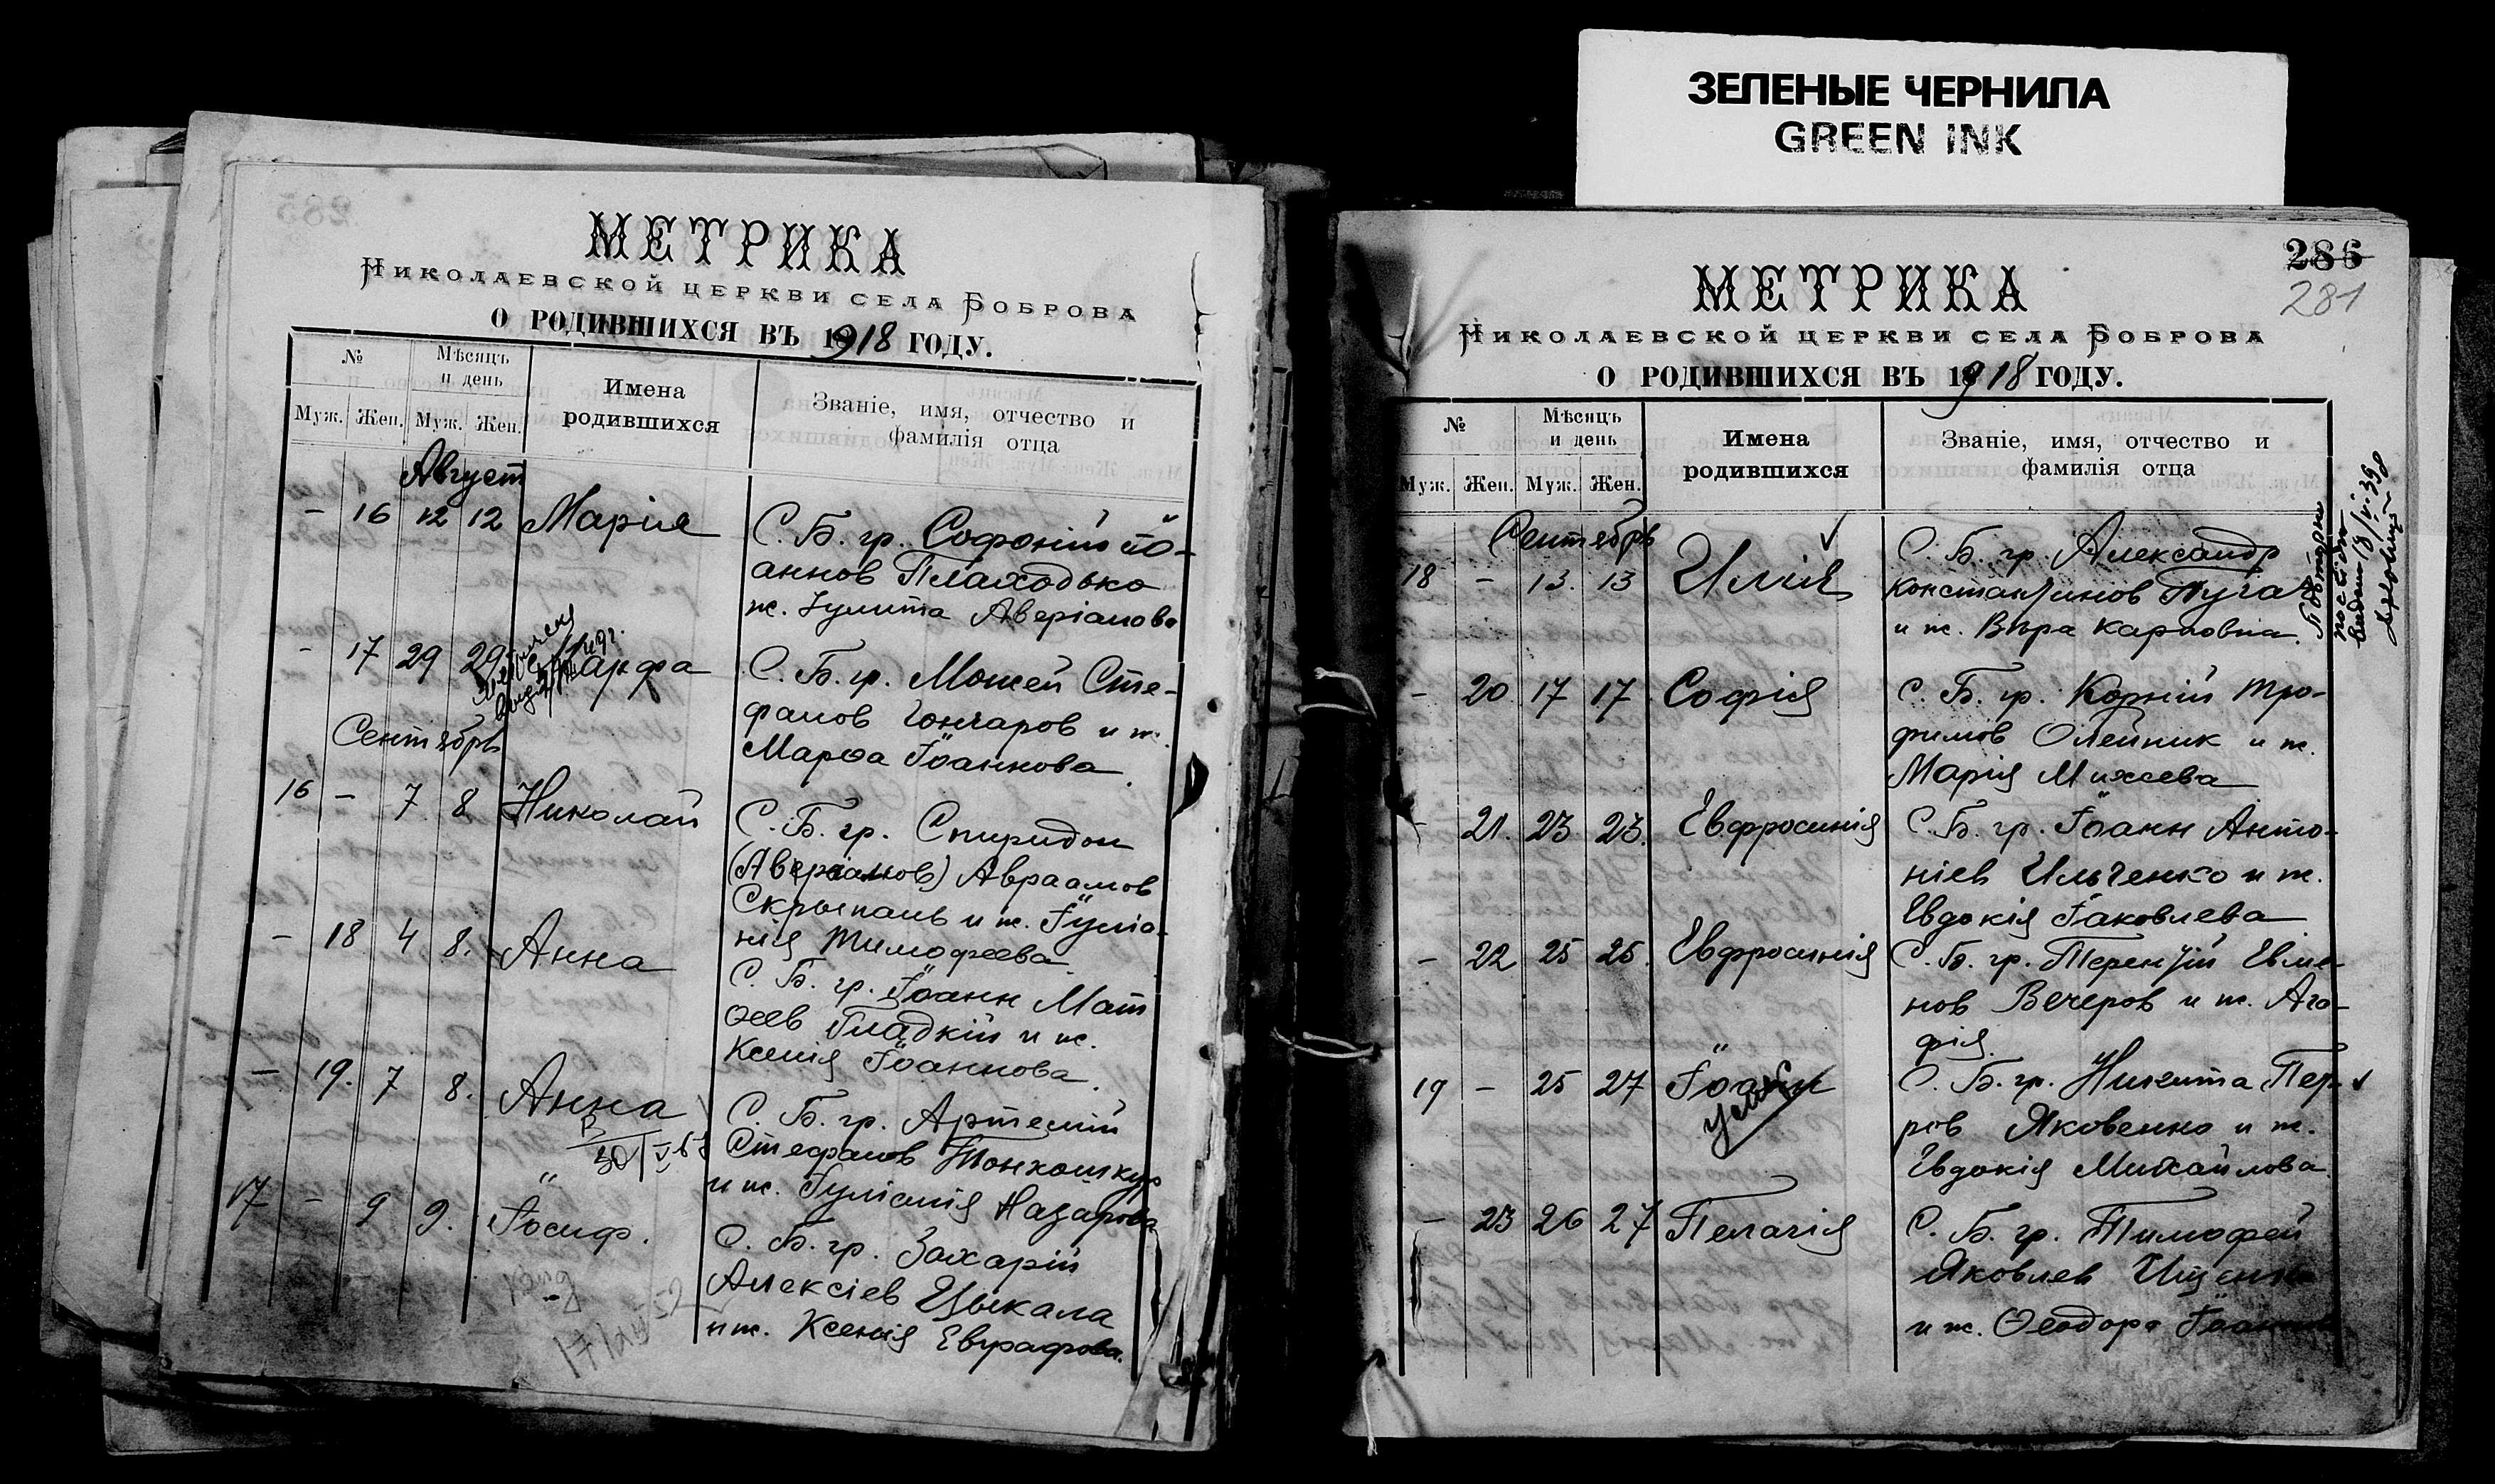 ЗЕЛЕНЫЕ ЧЕРНИЛА
GREEN INK
МЕТРИКА
НИКОЛАЕВСКОЙ ЦЕРКВИ СЕЛА БОБРОВА
О РОДИВШИХСЯ ВЪ 1918 ГОДУ.
№
Мѣсяцъ и день
Имена родившихся
Званіе, имя, отчество и фамилія отца
Муж. Жен. Муж. Жен.
Август
– 16 12 12 Марія
С. Б. гр. Софоній Іо-
аннов Плаходько
ж. Іулита Аверіанова
– 17 29 29 Марфа
С. Б. гр. Моисей Сте-
фанов Гончаров и ж.
Марѳа Іоаннова.
Сентябрь
16 – 7 8 Николай
С. Б. гр. Спиридон
(Аверіанов) Авраамов
Скрыпань и ж. Іуліа-
нія Тимофеева.
– 18 4 8. Анна
С. Б. гр. Іоанн Мат
ѳеев Гладкій и ж.
Ксенія Іоаннова.
– 19. 7 8. Анна
С. Б. гр. Артемій
Стефанов Тонкошкур
и ж. Іуліанія Назарова
17 – 9 9. Іосиф.
С. Б. гр. Захарій
Алексіев Цыкала
и ж. Ксенія Евграфова.
286
281
МЕТРИКА
НИКОЛАЕВСКОЙ ЦЕРКВИ СЕЛА БОБРОВА
О РОДИВШИХСЯ ВЪ 1918 ГОДУ.
№
Мѣсяцъ и день
Имена родившихся
Званіе, имя, отчество и фамилія отца
Муж. Жен. Муж. Жен.
Сентябрь
18 – 13. 13 Илія
С. Б. гр. Александр
Константинов Пугач
и ж. Вѣра Карповна.
– 20 17 17 Софія
С. Б. гр. Корній Тро-
фимов Олейник и ж.
Марія Михеева
– 21. 23 23. Евфросинія
С. Б. гр. Іоанн Анто-
ніев Ильченко и ж.
Евдокія Іаковлева
– 22 25 25. Евфросинія
С. Б. гр. Терентій Евме-
нов Вечеров и ж. Ага-
фія.
19 – 25 27 Іоанн
умер
С. Б. гр. Никита Пет-
ров Яковенко и ж.
Евдокія Михайлова.
– 23 26 27 Пелагія
С. Б. гр. Тимофей
Яковлев Ищенко
и ж. Ѳеодора